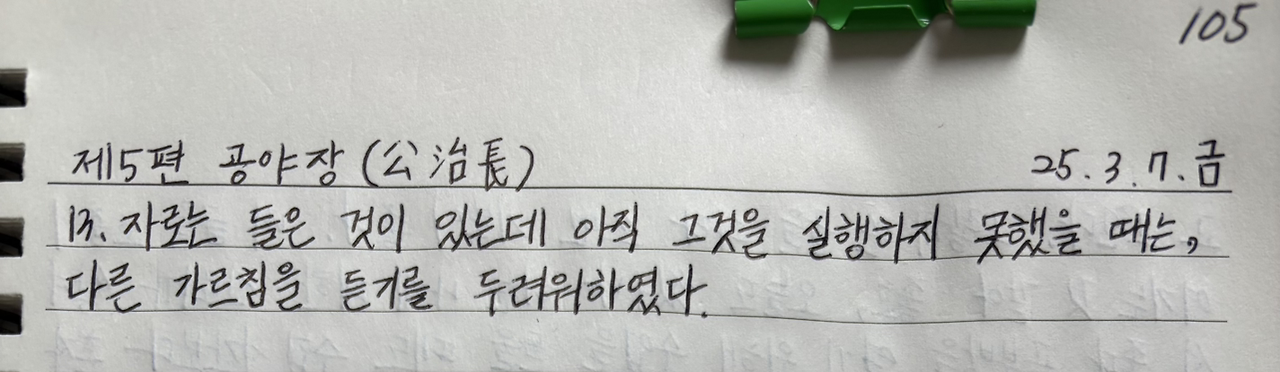 105
제5편 공야장(公治長) 25.3.7.금
13. 자로는 들은 것이 있는데 아직 그것을 실행하지 못했을 때는,
다른 가르침을 듣기를 두려워하였다.